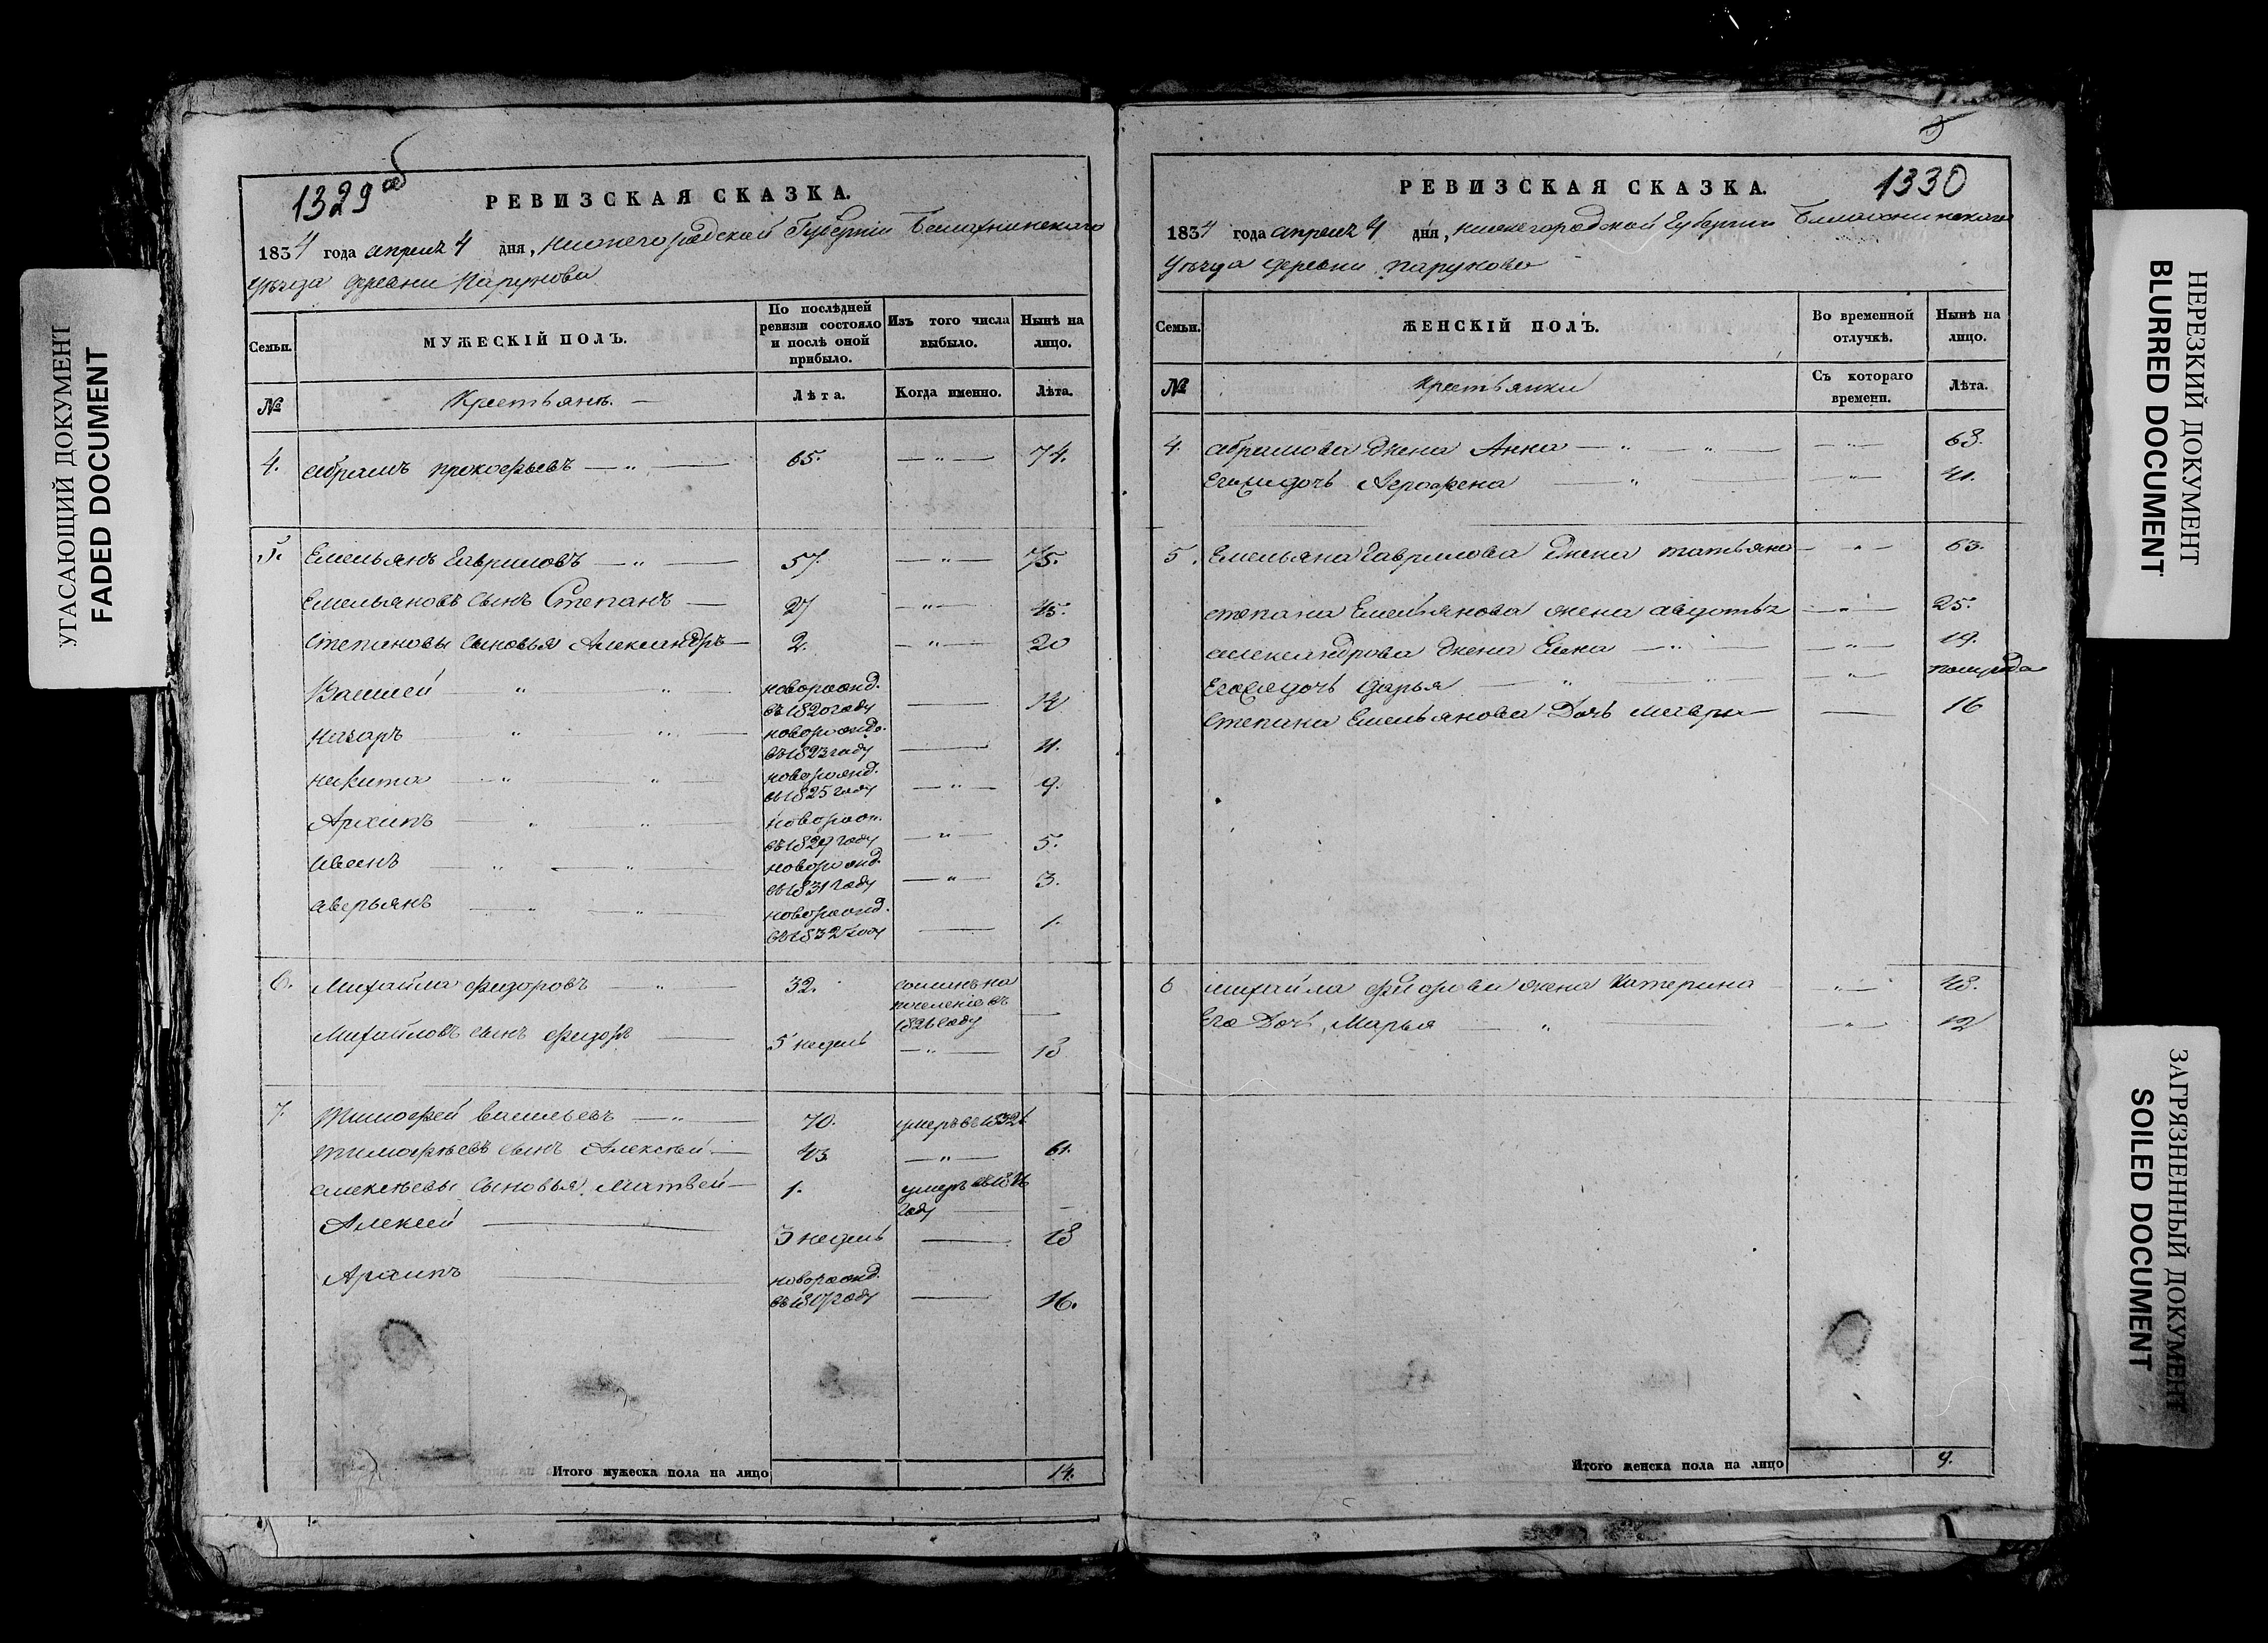 УГАСАЮЩИЙ ДОКУМЕНТ
FADED DOCUMENT
1329 об
РЕВИЗСКАЯ СКАЗКА.
1834 года апреля 4 дня, нижегородской Губернии Балахнинскаго
уезда деревни Парунова
Семьи.
МУЖЕСКІЙ ПОЛЪ.
По послѣдней ревизіи состояло и послѣ оной прибыло.
Изъ того числа выбыло.
Нынѣ на лицо.
№
Крестьянъ. —
Лѣта.
Когда именно.
Лѣта.
4. Абрамъ прокофьевъ — „ — 65. — „ — 74.
5. Емельянъ Гавриловъ — „ — 57. — „ — 75.
Емельяновъ сынъ Степанъ — 27 — „ — 45.
Степановы сыновья Александръ — 2. — „ — 20
Василей — „ — „ — новорожд.
въ 1820 году — 14
назаръ — „ — „ — новорожд.
въ 1823 году — 11.
никита — „ — „ — новорожд.
въ 1825 году — „ — 9.
Архипъ — „ — „ — новорож.
въ 1829 году — „ — 5.
Иванъ — „ — „ — новорожд.
въ 1831 году — „ — 3.
аверьянъ — „ — „ — новорожд.
въ 1832 году — 1.
6. Михайла фидоровъ — „ — 32. сосланъ на
поселеніе въ
1826 году —
Михайловъ сынъ фидоръ — 5 недель — „ — 18
7. Тимофей васильевъ — „ — 70. умеръ въ 1826
тимофѣевъ сынъ Алексѣй — 43 — „ — 61.
алексѣевы сыновья Матвей — 1. умеръ въ 1816
году —
Алексѣй — 3 недель — 18
Архипъ — новорожд.
въ 1817 году — 16.
Итого мужеска пола на лицо 14.
1330
РЕВИЗСКАЯ СКАЗКА.
1834 года апреля 4 дня, нижегородской Губернии Балахнинскаго
уезда деревни паруново
Семьи.
ЖЕНСКІЙ ПОЛЪ.
Во временной отлучкѣ.
Нынѣ на лицо.
№
Крестьянки
Съ котораго времени.
Лѣта.
4. абрамова жена Анна — „ — „ — — „ — 68.
Его дочь Аграфена — „ — — „ — 41.
5. Емельяна Гаврилова жена татьяна — „ — 63.
степана Емельянова жена авдотья — „ — 25.
александрова жена Елена — „ — — „ — 19.
дочь дарья — „ — „ — полгода
Степана Емельянова Дочь мавра — 16
6 михайла фидорова жена катерина — „ — 48.
Его Дочь Марья — „ — — „ — 12
Итого женска пола на лицо 9.
НЕРЕЗКИЙ ДОКУМЕНТ
BLURRED DOCUMENT
ЗАГРЯЗНЕННЫЙ ДОКУМЕНТ
SOILED DOCUMENT